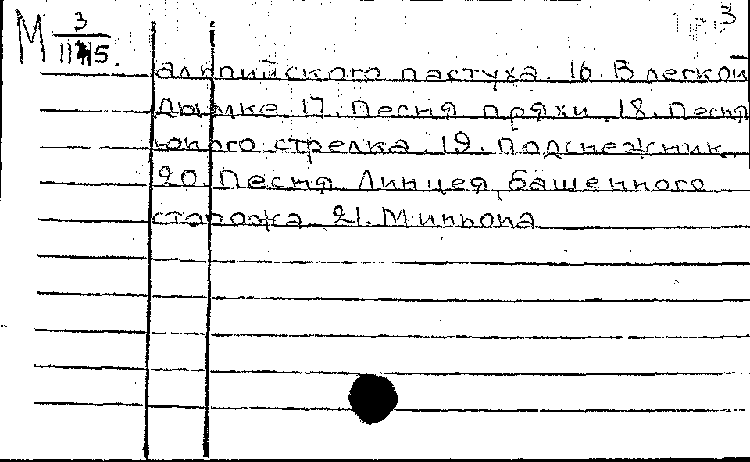 М 3
3
альпийского пастуха. 16. В легкой
дымке 17. Песня пряхи. 18. Песня
юного стрелка. 19. Подснежник.
20. Песня Линцея, башенного
сторожа 21. Миньона